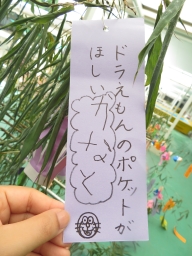 ドラえもんのポケットが
ほしい
かなと